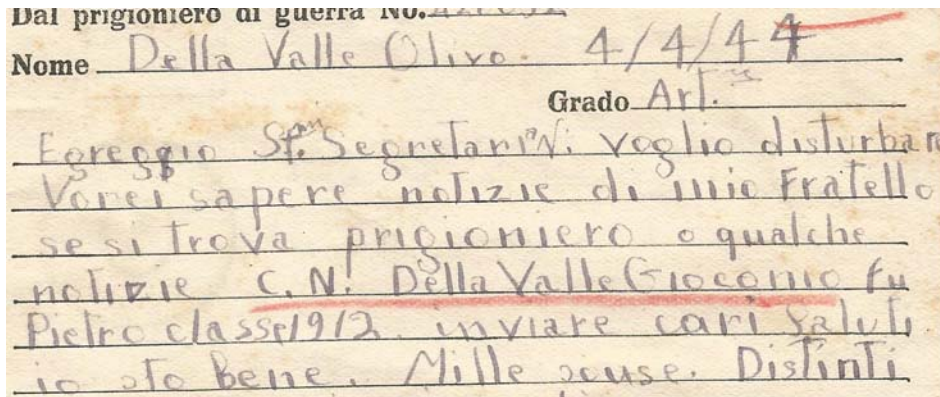 Dal prigioniero di guerra No.
Nome Della Valle Olivo. 4/4/44
Grado Art.
Egreggio Segretari Vi voglio disturbar
Vorei sapere notizie di mio Fratello
se si trova prigioniero o qualche
notizie C. N. Della Valle Giocomo fu
Pietro classe 1912. inviare cari saluti
io sto Bene. Mille scuse. Distinti